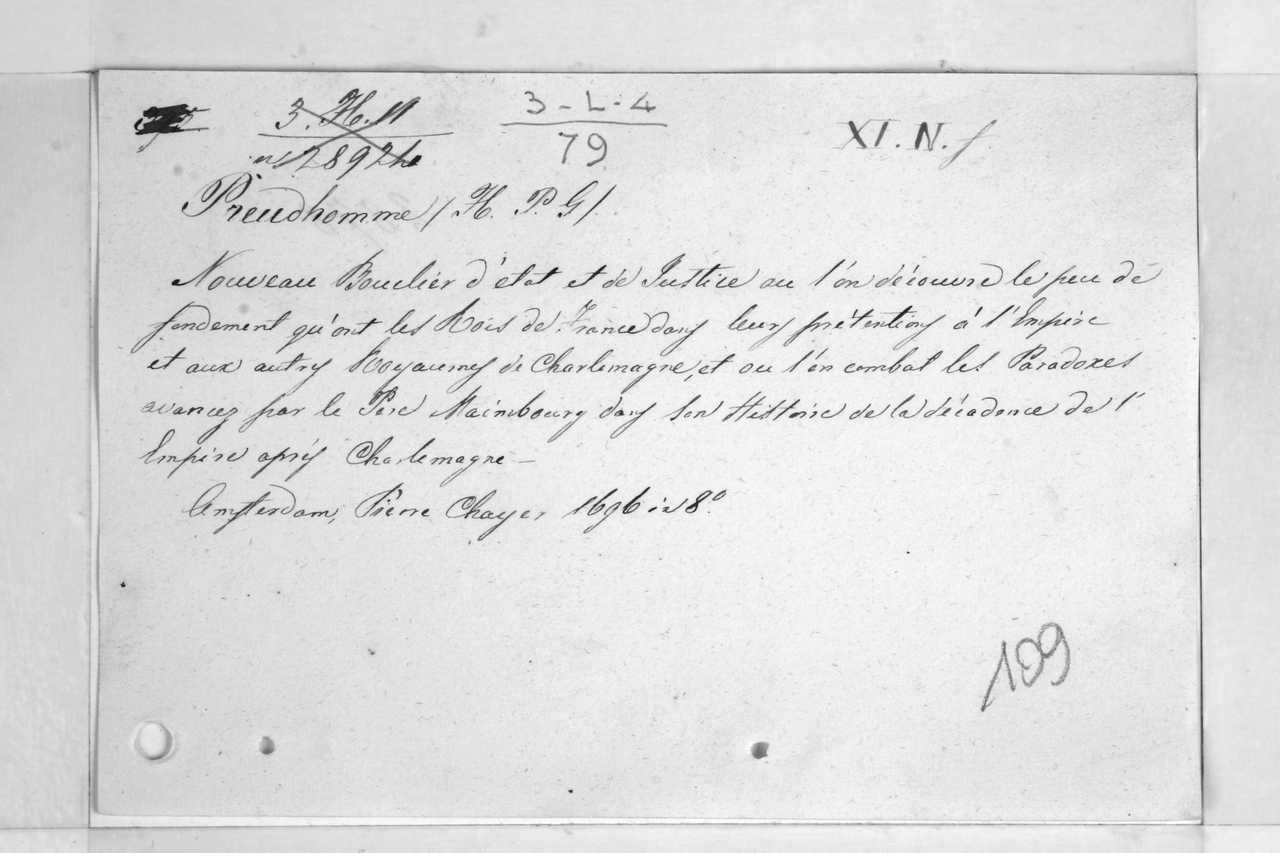 3.H.11 3-L-4
2892 79 XI.N.f
Preudhomme (H. P. G)
Nouveau Bouclier d'état et de Justice ou l'on découvre le peu de
fondement qu'ont les Rois de France dans leurs prétentions à l'Empire
et aux autres Royaumes de Charlemagne, et ou l'on combat les Paradoxes
avancez par le Père Maimbourg dans son Histoire de la décadence de l'
Empire après Charlemagne —
Amsterdam, Pierre Chayer 1696 in 8.º
109